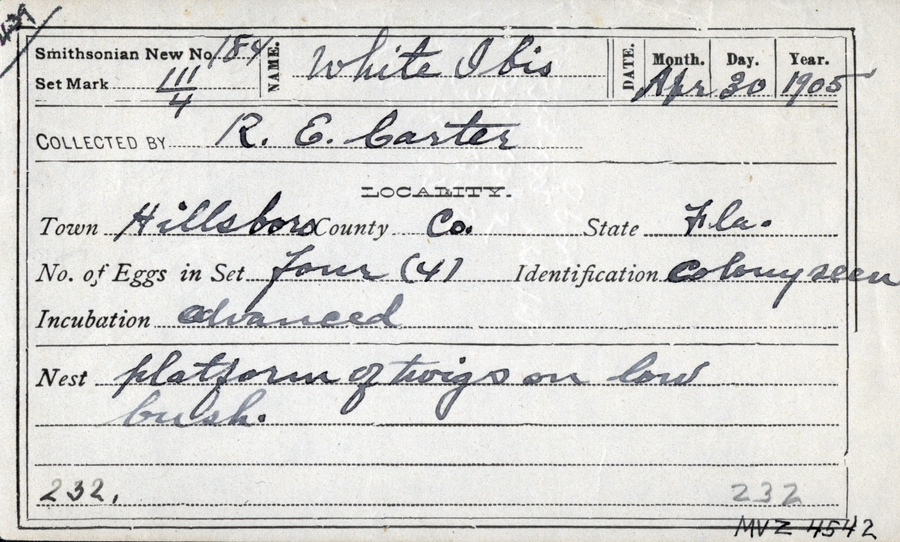 439
Smithsonian New No. 184 NAME. White Ibis DATE. Month. Day. Year.
Set Mark 111/4 Apr 30 1905
COLLECTED BY R. E. Carter
LOCALITY.
Town Hillsboro County Co. State Fla.
No. of Eggs in Set four (4) Identification colony seen
Incubation advanced
Nest platform of twigs on low
bush.
232. 232
MVZ 4542